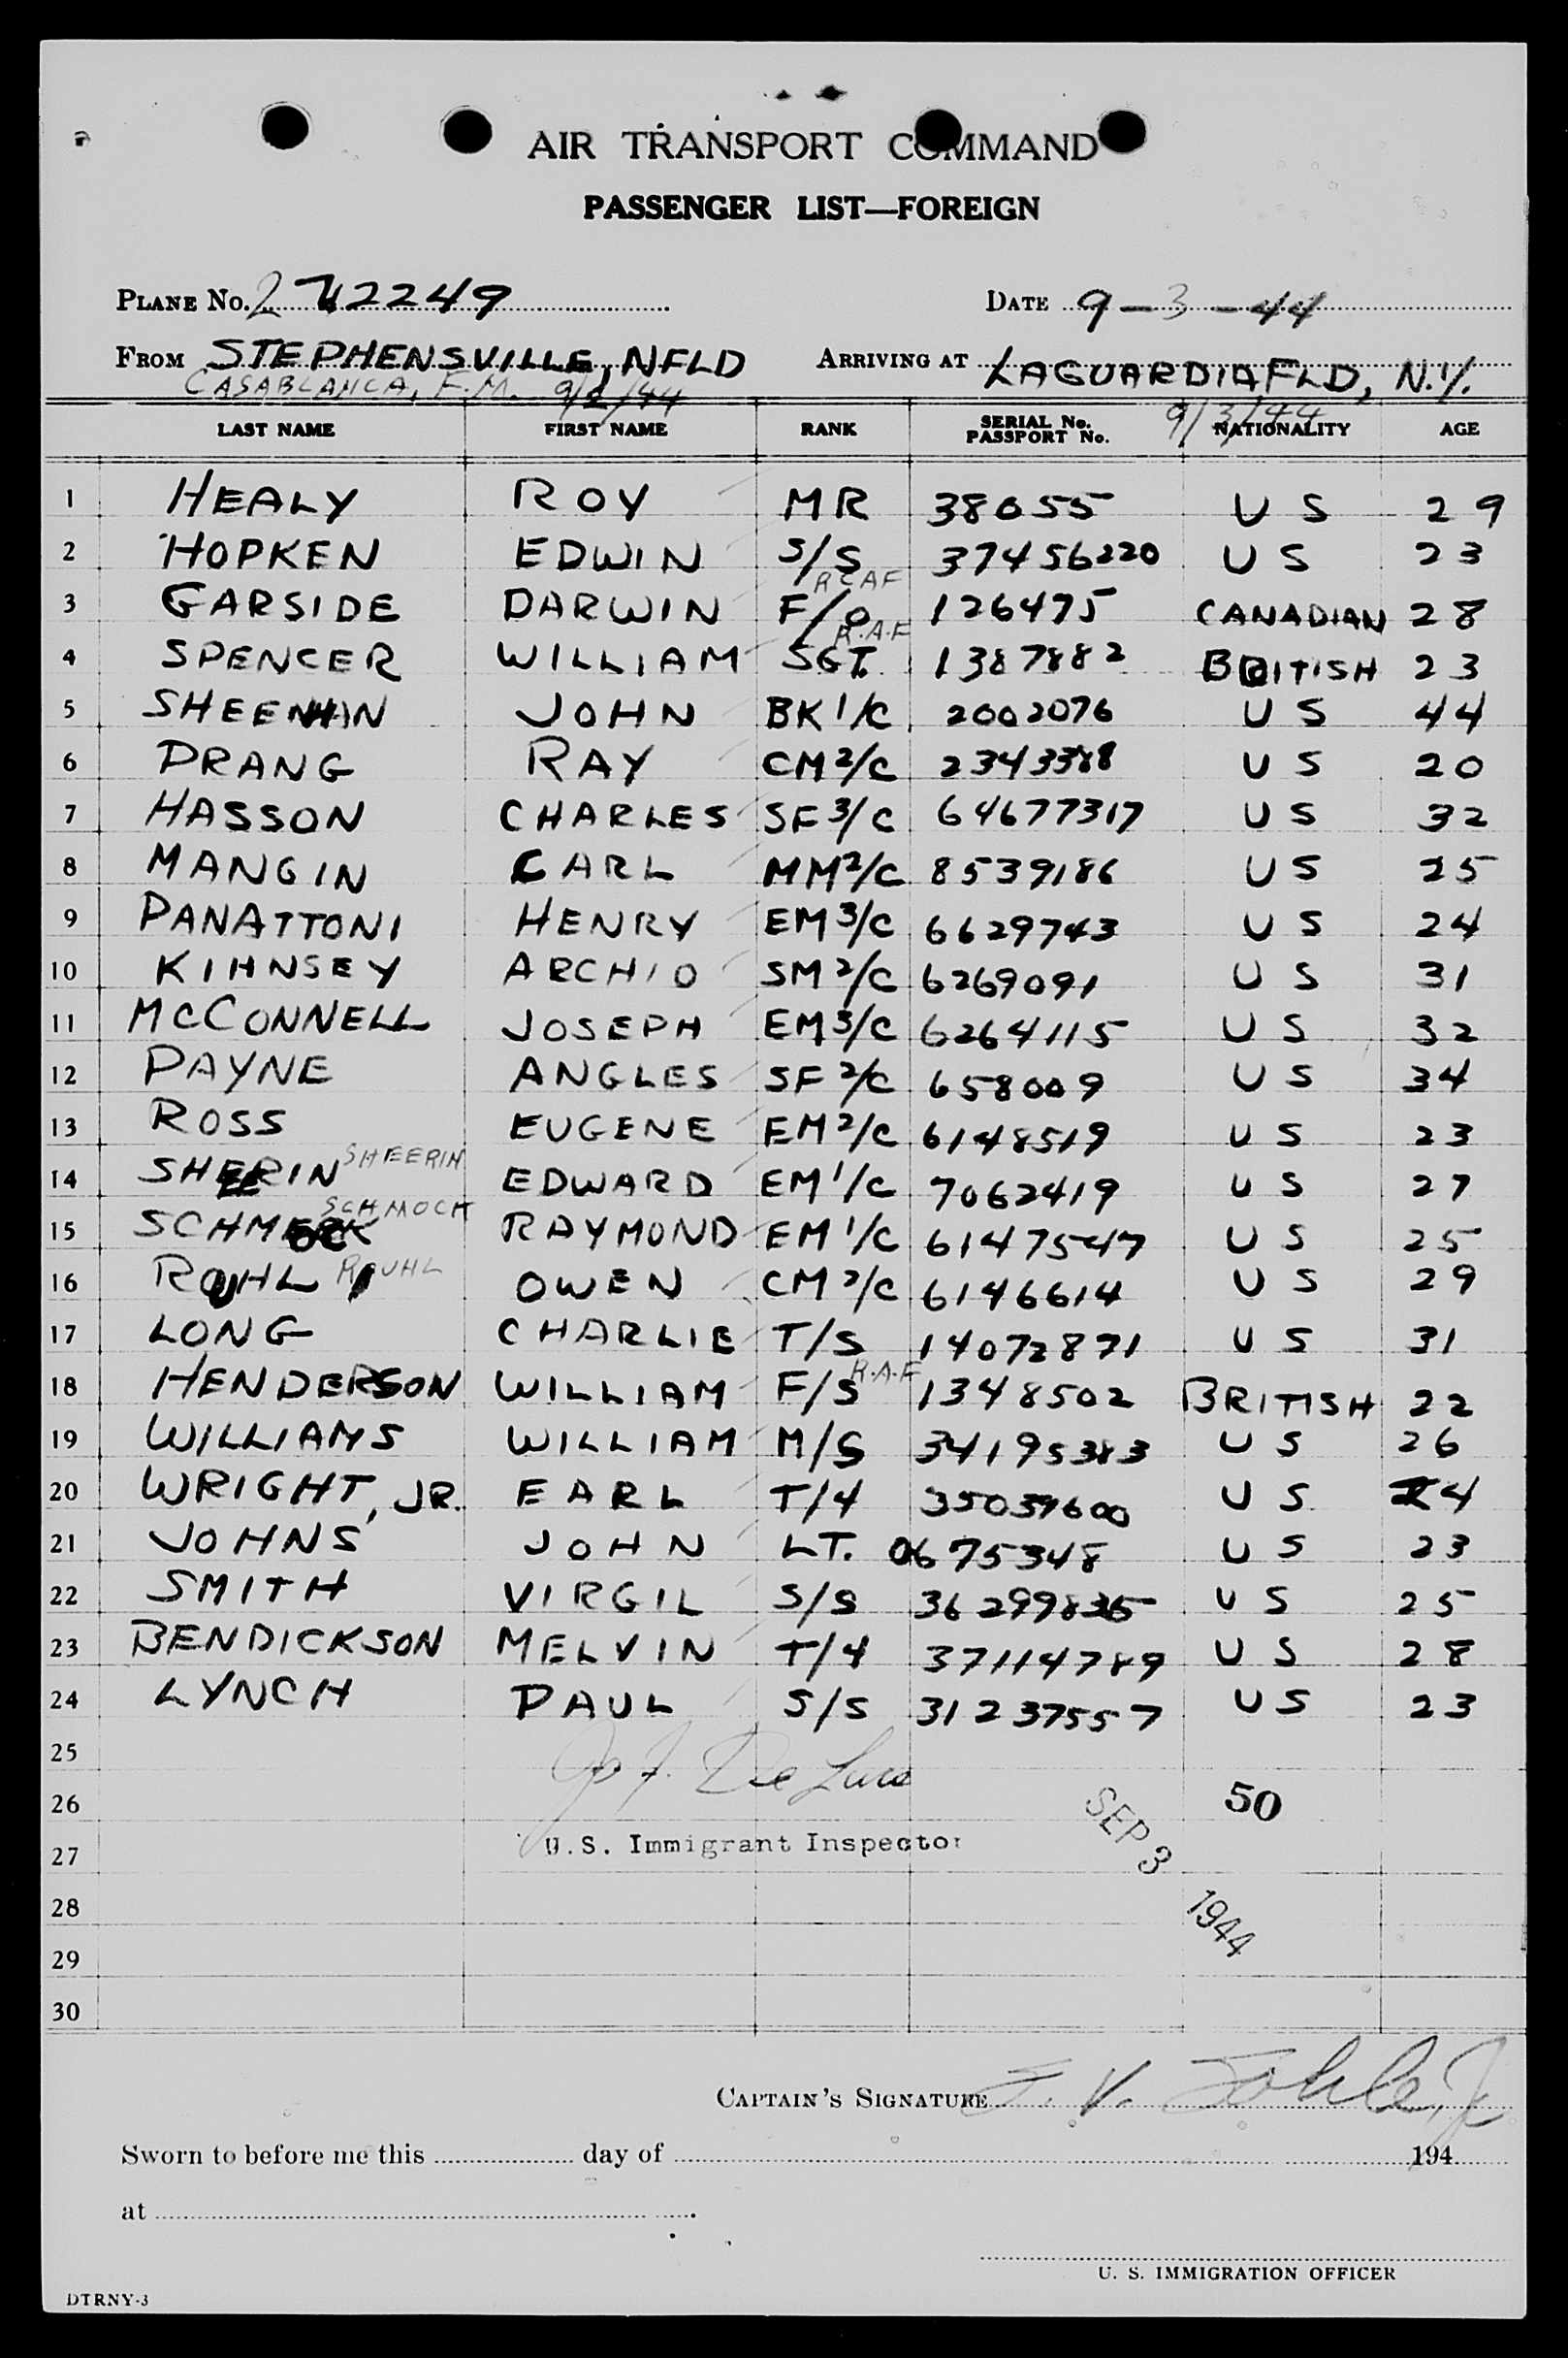 AIR TRANSPORT COMMAND
PASSENGER LIST—FOREIGN
PLANE No. 2 42249 DATE 9-3-44
FROM STEPHENSVILLE, NFLD ARRIVING AT LAGUARDIA FLD, N.Y.
CASABLANCA, F.M. 9/2/44 9/3/44
LAST NAME FIRST NAME RANK SERIAL No. PASSPORT No. NATIONALITY AGE
1 HEALY ROY MR 38055 US 29
2 HOPKEN EDWIN S/S 37456220 US 23
3 GARSIDE DARWIN F/O RCAF 126475 CANADIAN 28
4 SPENCER WILLIAM SGT. R.A.F 1387882 BRITISH 23
5 SHEEHAN JOHN BK 1/C 2002076 US 44
6 PRANG RAY CM2/C 2343388 US 20
7 HASSON CHARLES SF3/C 64677317 US 32
8 MANGIN CARL MM2/C 8539186 US 25
9 PANATTONI HENRY EM3/C 6629743 US 24
10 KIHNSEY ARCHIO SM2/C 6269091 US 31
11 MCCONNELL JOSEPH EM3/C 6264115 US 32
12 PAYNE ANGLES SF2/C 658009 US 34
13 ROSS EUGENE EM2/C 6148519 US 23
14 SHEERIN SHEERIN EDWARD EM1/C 7062419 US 27
15 SCHMOCK SCHMOCK RAYMOND EM1/C 6147547 US 25
16 RUHL RUHL OWEN CM2/C 6146614 US 29
17 LONG CHARLIE T/S 14072871 US 31
18 HENDERSON WILLIAM F/S R.A.F 1348502 BRITISH 22
19 WILLIAMS WILLIAM M/S 34195383 US 26
20 WRIGHT, JR. EARL T/4 35039600 US 24
21 JOHNS JOHN LT. 0675348 US 23
22 SMITH VIRGIL S/S 36299835 US 25
23 BENDICKSON MELVIN T/4 37114789 US 28
24 LYNCH PAUL S/S 31237557 US 23
25
26 50
27 U.S. Immigrant Inspector SEP 3 1944
28
29
30
CAPTAIN'S SIGNATURE
Sworn to before me this day of 194
at
U. S. IMMIGRATION OFFICER
DTRNY-3